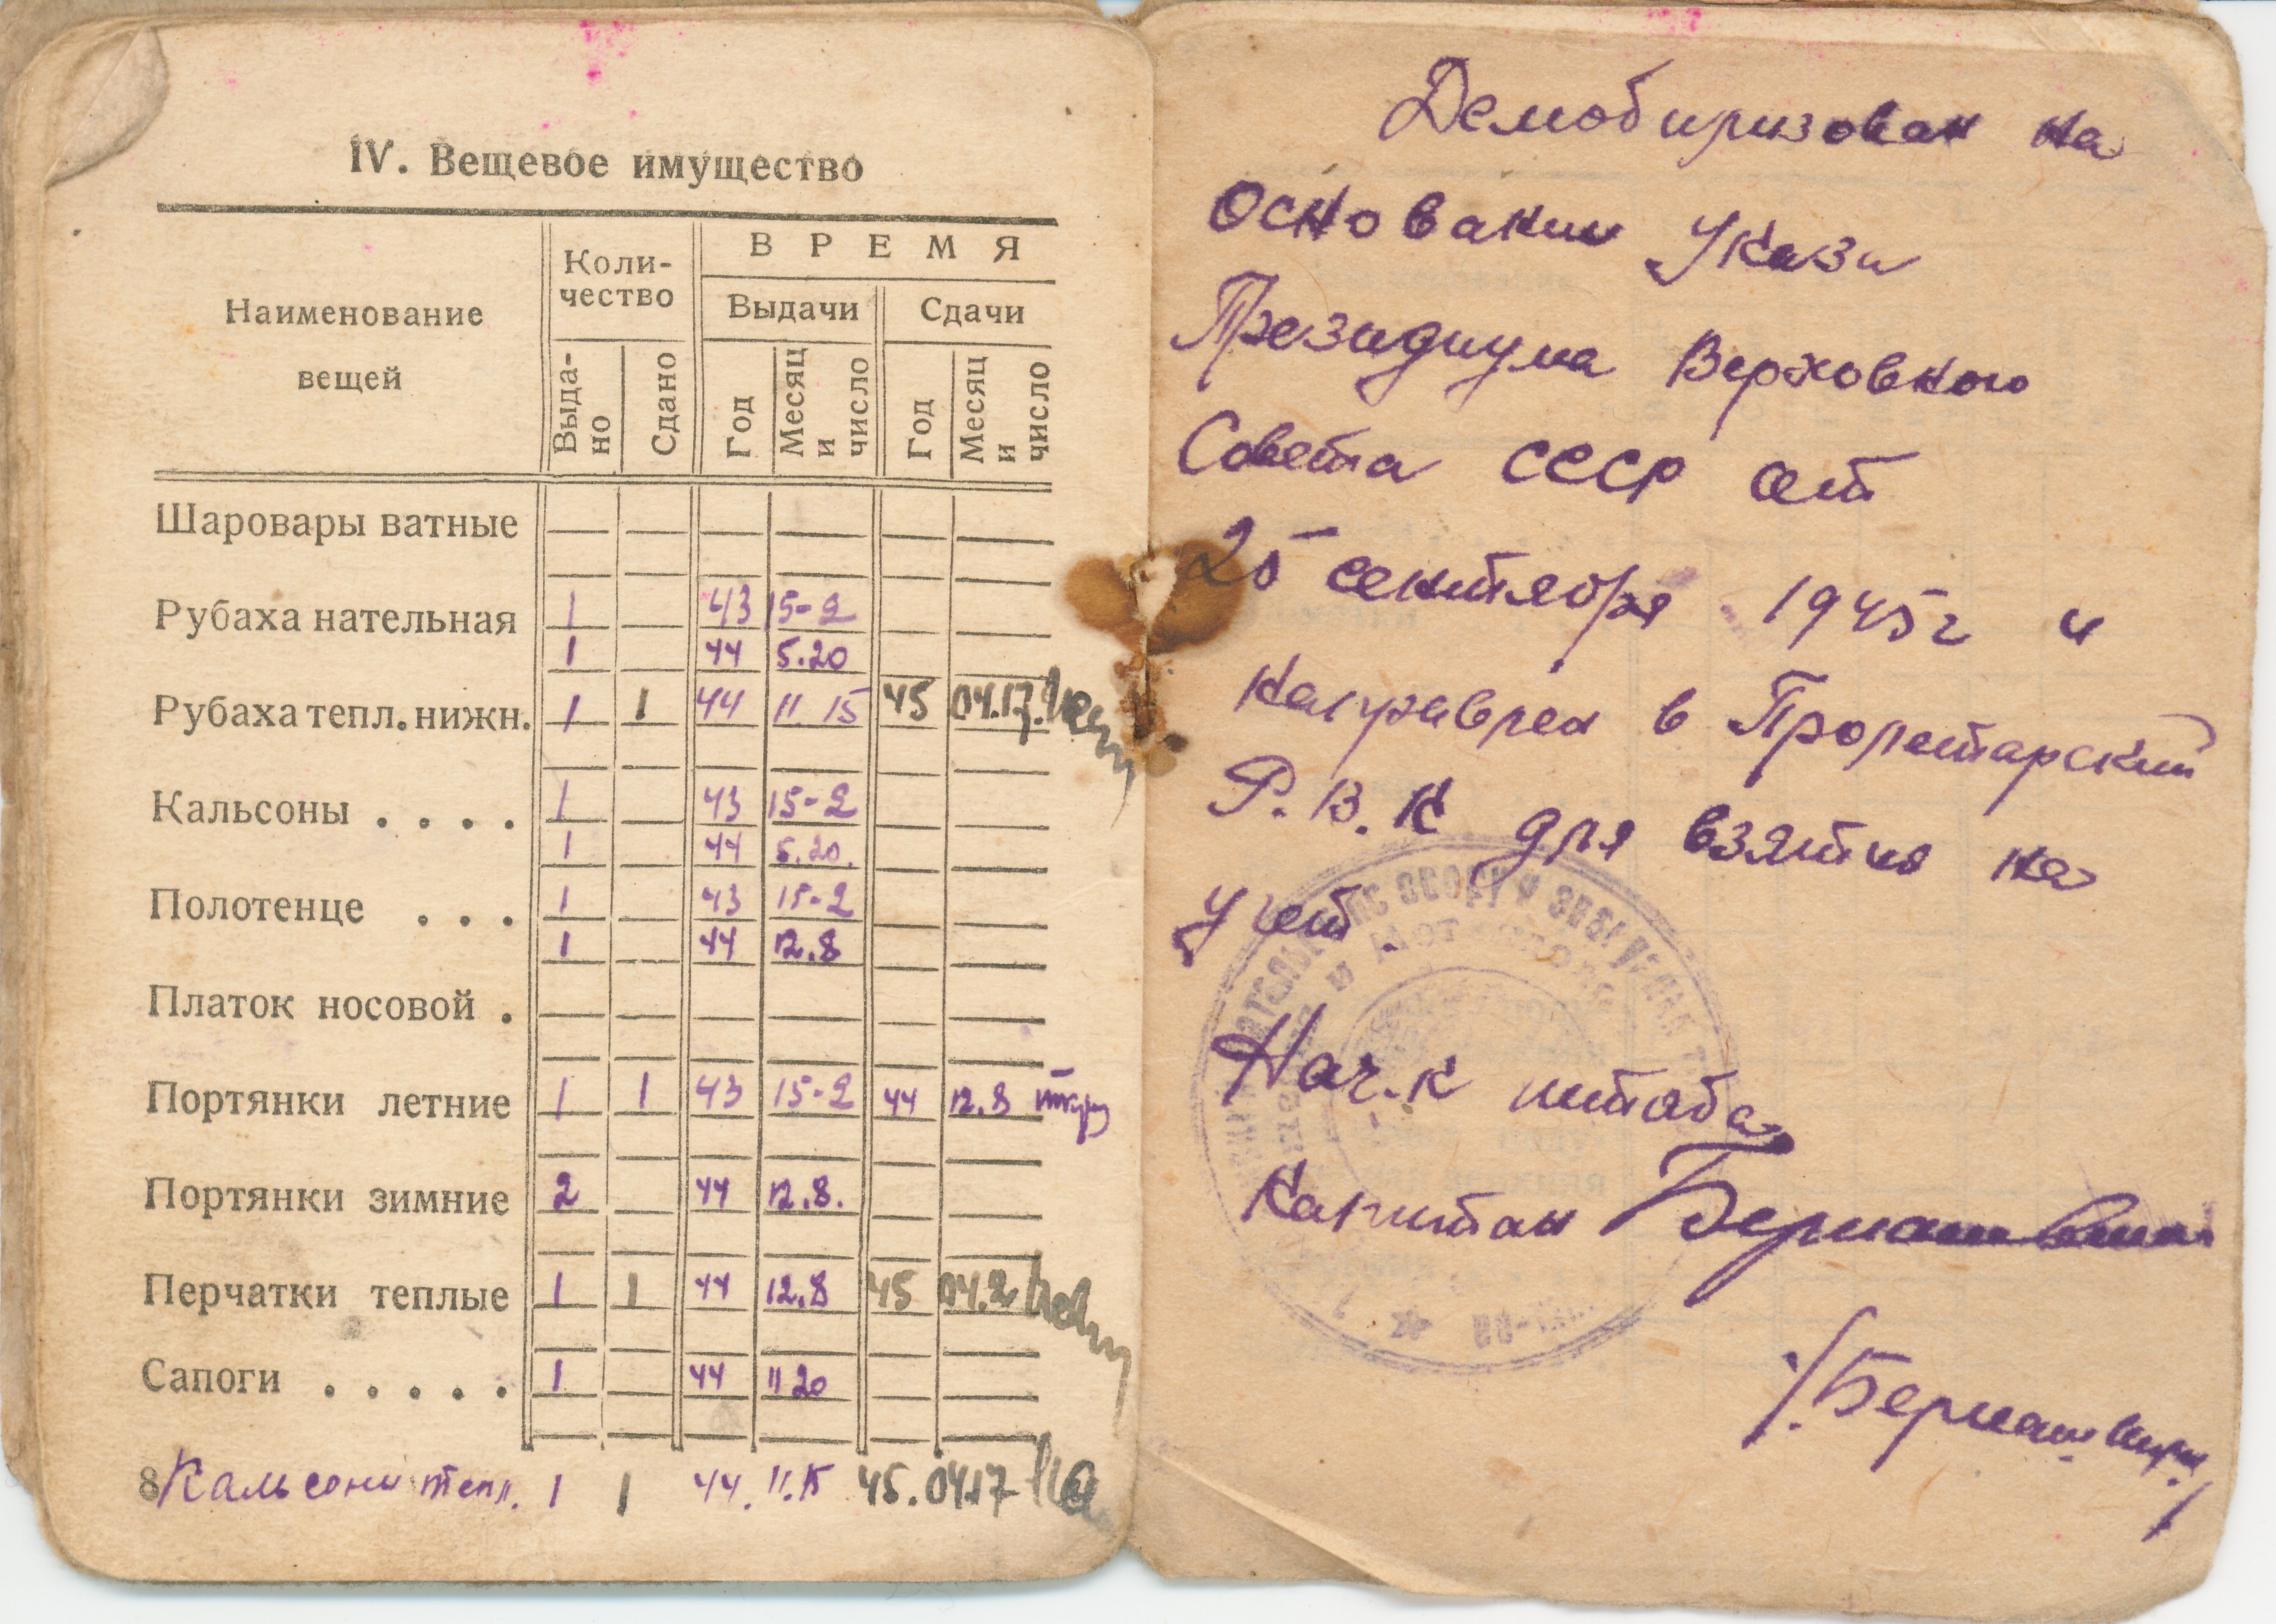 IV. Вещевое имущество
Наименование вещей
Коли-
чество
ВРЕМЯ
Выдачи
Сдачи
Выда-
но
Сдано
Год
Месяц
и
число
Год
Месяц
и
число
Шаровары ватные
Рубаха нательная 1 43 15-2
1 44 5.20
Рубаха тепл. нижн. 1 1 44 11 15 45 04.17.
Кальсоны . . . . 1 43 15-2
1 44 5.20.
Полотенце . . . 1 43 15-2
1 44 12.8
Платок носовой .
Портянки летние 1 1 43 15-2 44 12.8
Портянки зимние 2 44 12.8.
Перчатки теплые 1 1 44 12.8 45 04.2
Сапоги . . . . . 1 44 11 20
8 Кальсоны тепл. 1 1 44. 11.15 45. 04.17
Демобилизован на
основании Указа
Президиума Верховного
Совета СССР от
25 сентября 1945г и
направлен в Пролетарский
Р.В.К для взятия на
учет.
Нач.к штаба
Капитан